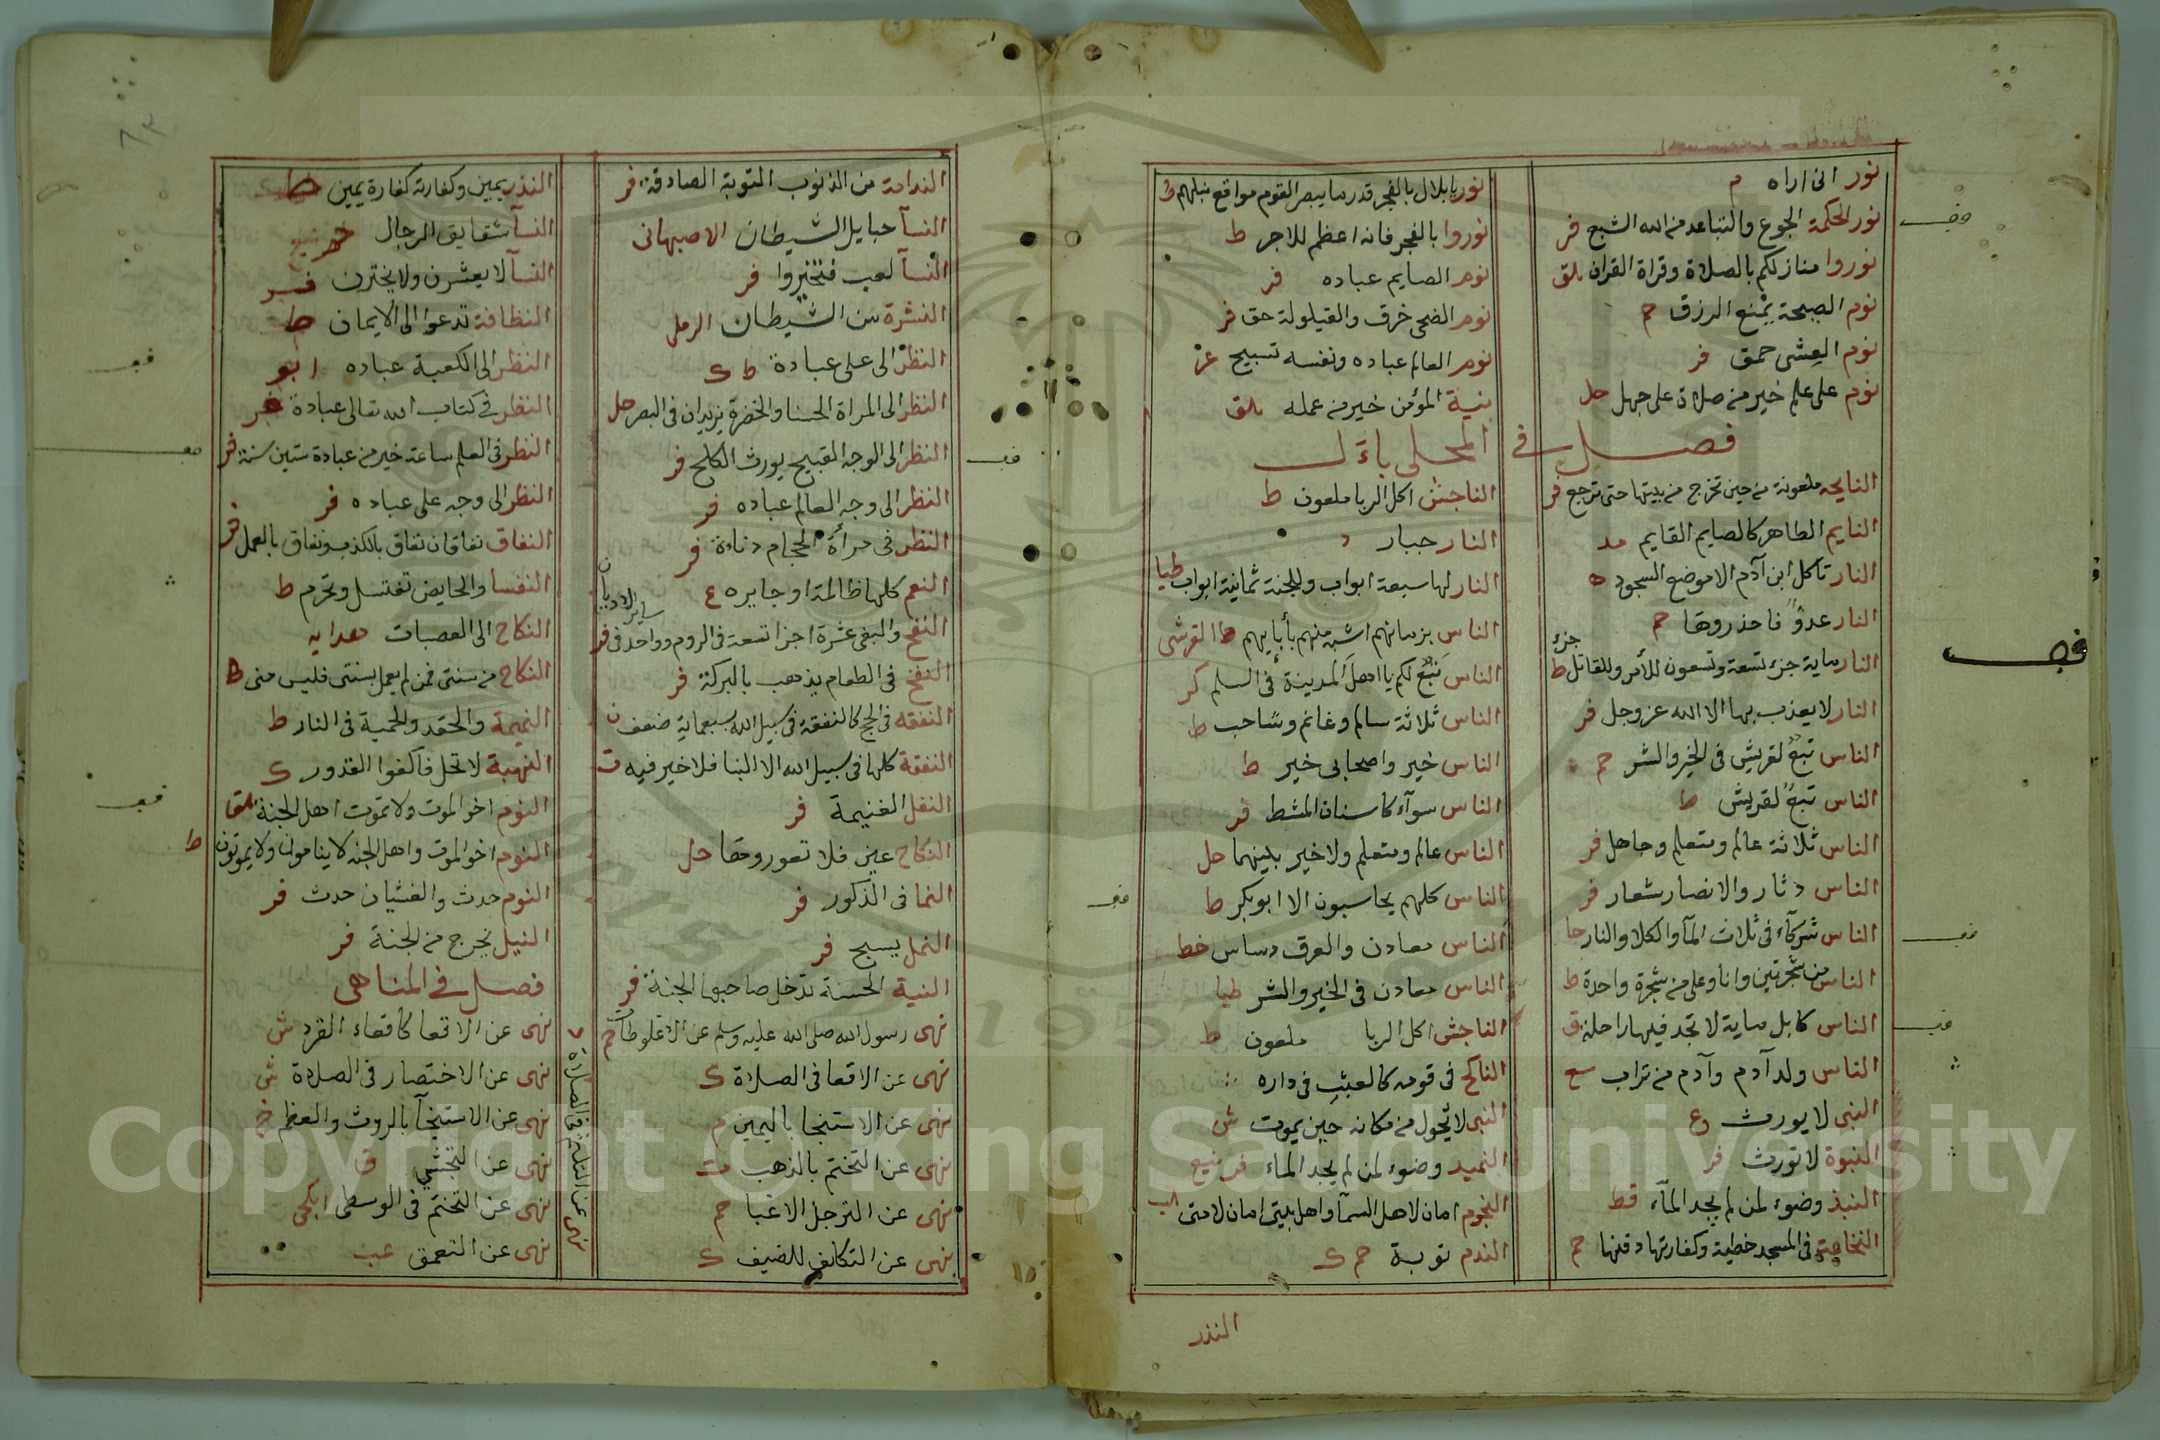 نور انى اراه م
نور الحكمة الجوع والتباعد من الله الشبع فر
نوروا منازلكم بالصلاة وقراة القران
نوم الصبحة يمنع الرزق
نوم العشى حمق فر
نوم على علم خير من صلاة على جهل حل
نور يا بلال بالفجر قدر ما يبصر القوم مواقع نبلهم ط
نوروا بالفجر فانه اعظم للاجر ط
نوم الصايم عباده فر
نوم الضحى خرق والقيلولة حق فر
نوم العالم عباده ونفسه تسبيح
نية المؤمن خير من عمله
فصل فى المحلى بال
النايحه ملعونة من حين تخرج من بيتها حتى ترجع فر
النايم الطاهر كالصايم القايم
النار تاكل ابن آدم الا موضع السجود ه
النار عدوٌ فاحذروها
النار ماية جزء تسعة وتسعون للآمر وللقاتل جزء ط
النار لا يعذب بها الا الله عز وجل فر
الناس تبع لقريش فى الخير والشر
الناس تبع لقريش ط
الناس ثلاثة عالم ومتعلم وجاهل فر
الناس دثار والانصار شعار فر
الناس شركآء فى ثلاث المآ والكلا والنار
الناس من شجرتين وانا وعلى من شجرة واحدة ط
الناس كابل ماية لا تجد فيها راحلة ق
الناس ولد آدم وآدم من تراب سع
النبى لا يورث ع
النبوة لا تورث فر
النبذ وضوء لمن لم يجد المآء قط
النخامة فى المسجد خطية وكفارتها دفنها
الناجش اكل الربا ملعون ط
النار جبار د
النار لها سبعة ابواب وللجنة ثمانية ابواب طيا
الناس بزمانهم اشبه منهم بأبايهم القرشى
الناس تبع لكم يا اهل المدينة فى السلم كر
الناس ثلاثة سالم وغانم وشاحب ط
الناس خير واصحابى خير ط
الناس سوآء كاسنان المشط فر
الناس عالم ومتعلم ولا خير بينهما حل
الناس كلهم يحاسبون الا ابوبكر ط
الناس معادن والعرق دساس خط
الناس معادن فى الخير والشر طيا
الناجش اكل الربا ملعون ط
الناكح فى قومه كالمعشب فى داره
النبى لا يحول من مكانه حين يموت ش
النبيذ وضوء لمن لم يجد الماء
النجوم امان لاهل السمآ واهل بيتى امان لامتى
الندم توبة حم ك
النذر
الندامة من الذنوب التوبة الصادقة فر
النسآ حبايل الشيطان الاصبهانى
النسآ لعب فتخيروا فر
النشرة من الشيطان الرملى
النظر الى على عبادة ط ك
النظر الى المراة الحسنا والخضرة يزيدان فى البصر حل
النظر الى الوجه القبيح يورث الكلح فر
النظر الى وجه العالم عباده فر
النظر فى مرأة الحجام دناءة فر
النعم كلها ظالمة او جايره ع
النفخ والبغى عشرة اجزا تسعة فى الروم وواحد فى ساير الاديان فر
النفخ فى الطعام يذهب بالبركة فر
النفقه فى الحج كالنفقة فى سبيل الله بسبعماية ضعف ن
النفقة كلها فى سبيل الله الا البنا فلا خير فيه ت
النفل الغنيمة فر
النكاح عين فلا تعوروها حل
النما فى الذكور فر
النمل يسبح فر
النية الحسنة تدخل صاحبها الجنة فر
نهى رسول الله صلى الله عليه وسلم عن الاغلوطات حم
نهى عن الاقعا فى الصلاة ك
نهى عن الاستنجا باليمين م
نهى عن التختم بالذهب ت
نهى عن الترجل الا غبا حم
نهى عن التكلف للضيف ك
نهى عن التلثم فى الصلاة
النذر يمين وكفارته كفارة يمين ط
النسآ شقايق الرجال
النسآ لا يعشرن ولا يخترن
النظافة تدعوا الى الايمان ط
النظر الى الكعبة عباده ابو
النظر فى كتاب الله تعالى عبادة فر
النظر فى العلم ساعة خير من عبادة ستين سنة فر
النظر الى وجه على عباده فر
النفاق نفاقان نفاق بالكذب ونفاق بالعمل فر
النفسا والحايض تغتسل وتحرم ط
النكاح الى العصبات
النكاح من سنتى فمن لم يعمل بسنتى فليس منى ه
النميمة والحقد والحمية فى النار ط
النهبة لا تحل فاكفوا القدور ك
النوم اخو الموت ولا تموت اهل الجنة
النوم اخو الموت واهل الجنه لا ينامون ولا يموتون ط
النوم حدث والغشيان حدث فر
النيل يخرج من الجنة فر
فصل فى المناهى
نهى عن الاقعا كاقعاء القرد ش
نهى عن الاختصار فى الصلاة ش
نهى عن الاستنجآ بالروث والعظم خ
نهى عن التجشى ق
نهى عن التختم فى الوسطى
نهى عن التعمق
Copyright © King Saud University
1957